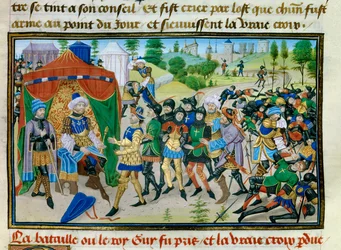 tre se tint a son conseil Et fist crier par lost que chun fust
arme au point du Jour et sieuvissent la vraie croix.
La bataille ou le roy Guy fu pris et la vraie croix pdue